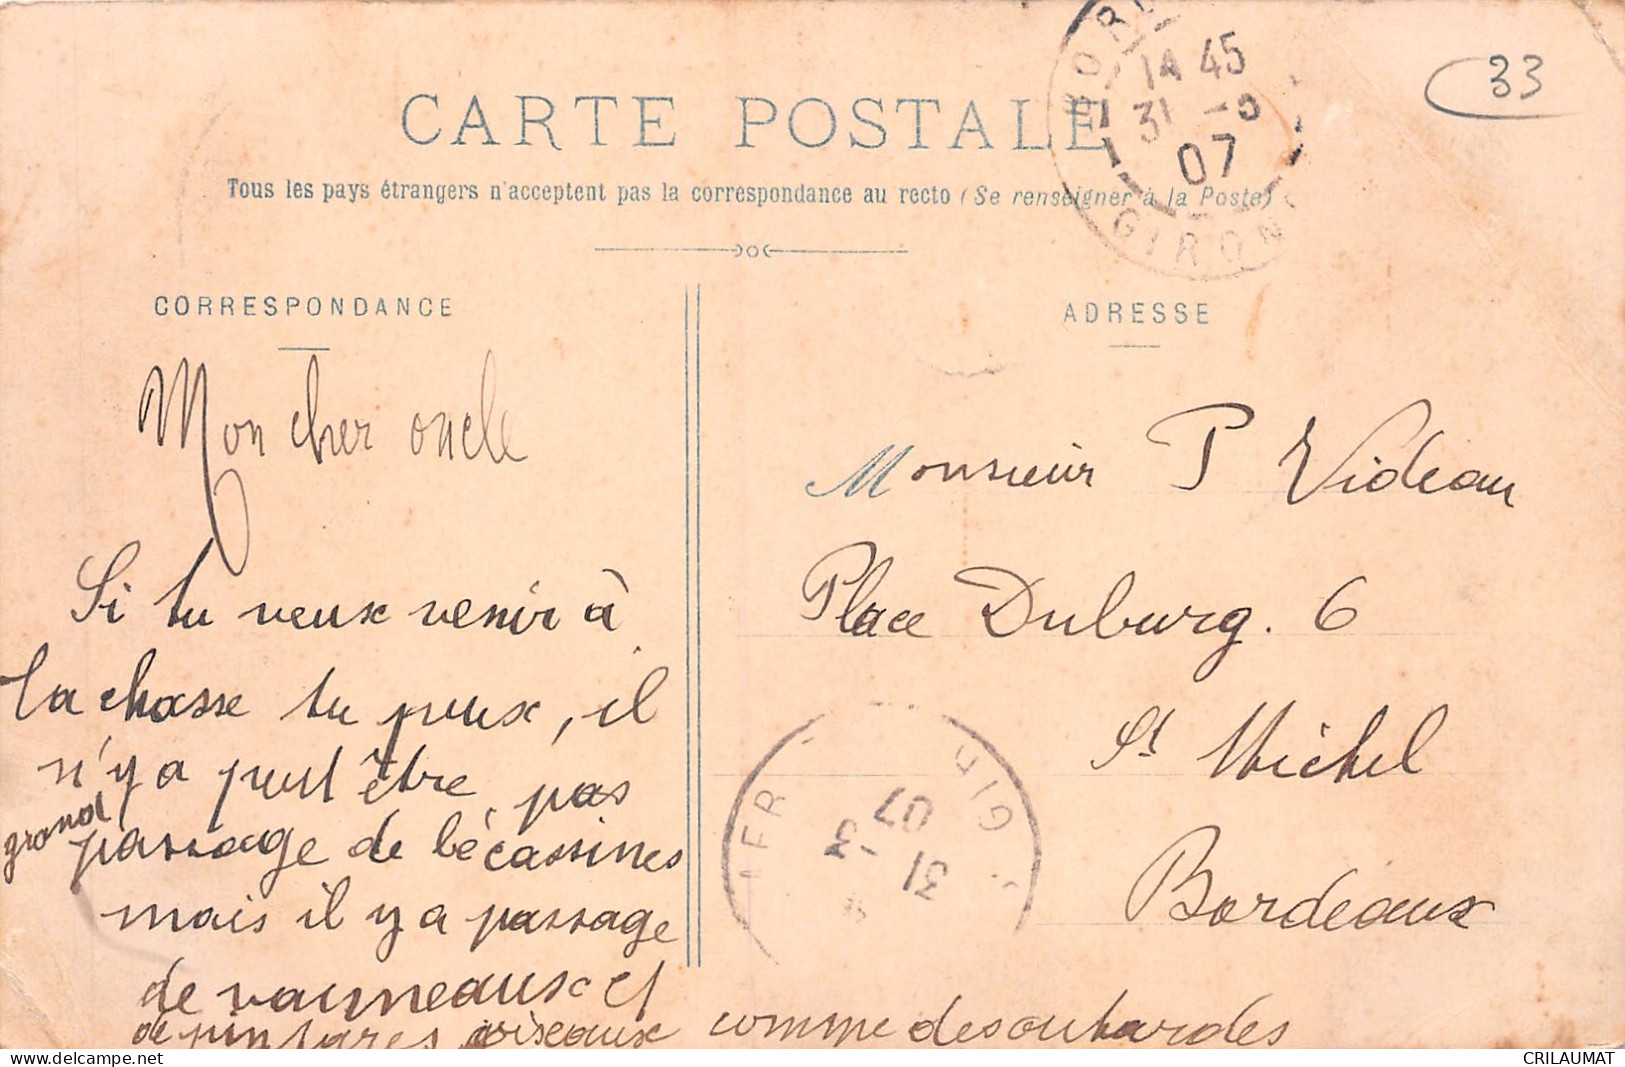 CARTE POSTALE
Tous les pays étrangers n'acceptent pas la correspondance au recto (Se renseigner à la Poste)
14 45
31 -
07
GIRON
33
CORRESPONDANCE
ADRESSE
Mon cher oncle
Si tu veux venir à
la chasse tu peux, il
n'y a peut être pas
grand
passage de bécassines
mais il y a passage
de vanneaux et
de pintares oiseaux comme des outardes
Monsieur P Videau
Place Duburg. 6
St Michel
Bordeaux
31 -3
07
GIR
CRILAUMAT